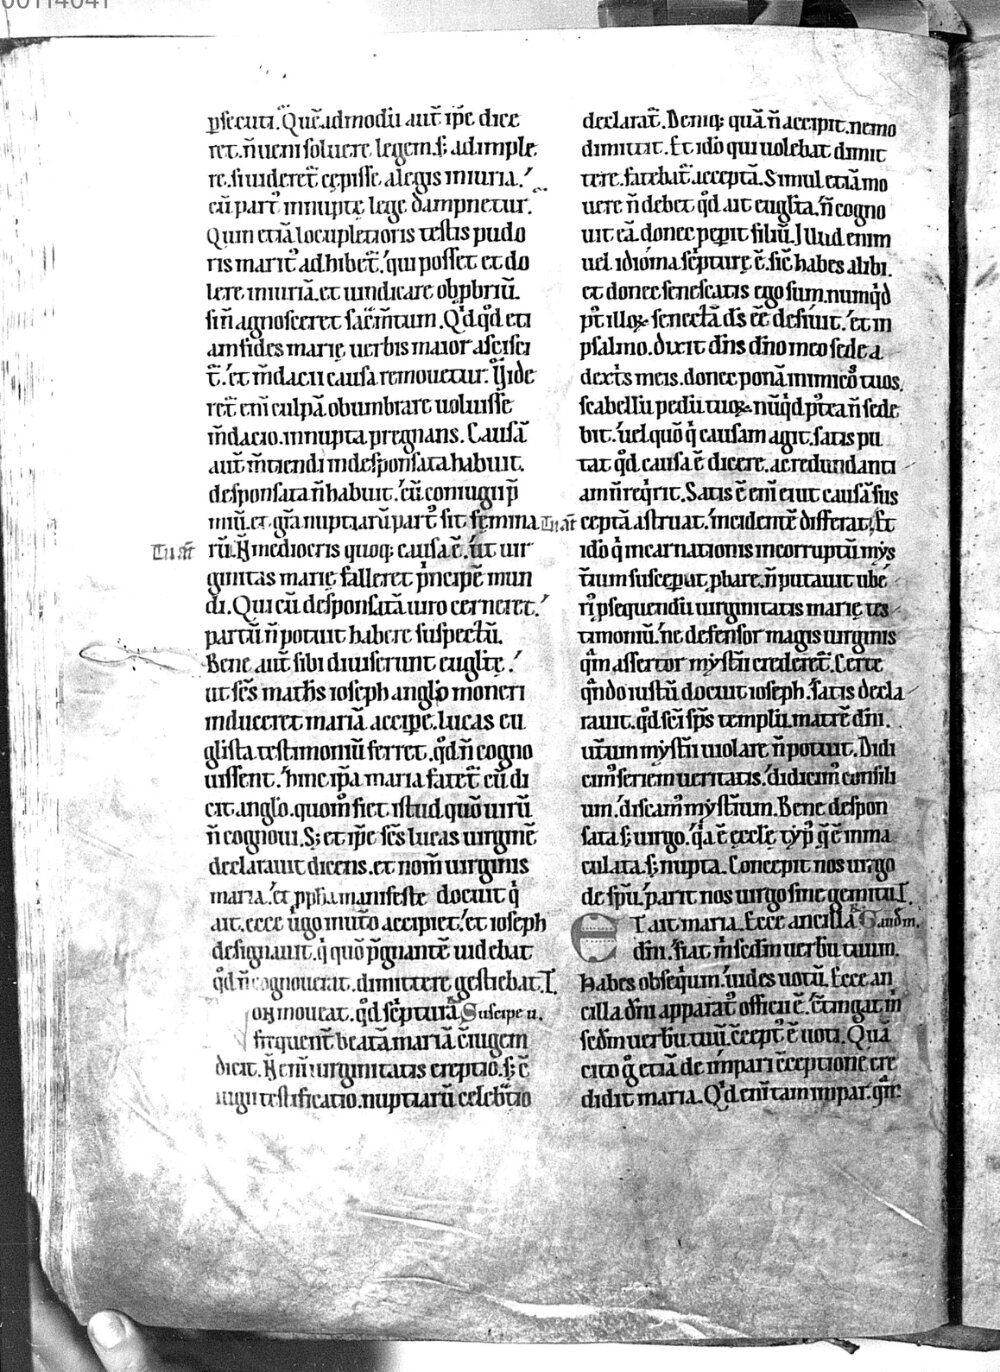 00114041
ꝑsecuti. Quēadmodū aut̄ ip̄e dice
ret. n̄ ueni soluere legem. s; adimple
re. si uideret̄ cepisse a legis iniuria.
cū part᷒ innupte lege dampnetur.
Quin etiā locupletioris testis pudo
ris marit᷒ adhibet̄. qui posset et do
lere iniuriā. et uindicare obp̱briū.
si n̄ agnosceret sac̄m̄tum. Qd̓ qd̓ eti
am fides marie uerbis maior ascisci
t̄. et m̄dacii causa remouetur. Uide
ret̄ eni culpā obumbrare uoluisse
m̄dacio. innupta pregnans. Causā
aut̄ m̄tiendi indesponsata habuit.
desponsata n̄ habuit. cū coniugii p̄
miū. et gr̄a nuptiarū part᷒ sit femina
Tu aūt
rū. N̄ mediocris quoq; causa ē. ut uir
ginitas marie falleret p̓ncipē mun
di. Qui cū desponsatā uiro cerneret.
partū n̄ potuit habere suspectū.
Bene aut̄ sibi diuiserunt eugl̄iste.
ut sc̄s math̄s ioseph anglo moneri
induceret mariā accipe. lucas eu
glista testimoniū ferret. qd̓ n̄ cogno
uissent. hinc ip̄a maria fatet̄ cū di
cit anglo. quom̓ fiet istud. quō uirū
n̄ cognoui. S; et ip̄e sc̄s lucas uirginē
declarauit dicens. et nom̄ uirginis
maria. et ppha manifeste docuit q̓
ait. ecce uirgo in utero accipiet. et ioseph
designauit. q̓ quō p̓gnantē uidebat
qd̓ n̄ cognouerat. dimittere gestiebat. I
on moueat. qd̓ sc̓pturā Suscipe u.
frequent̄ beatā mariā c̄iugem
dicit. N̄ eni uirginitatis ereptio. s; c̄
iugii testificatio. nuptiarū celeb̓tio
declarat̄. Deniq; quā n̄ accipit. nemo
dimittit. Et idō qui uolebat dimit
tere. fatebat̄ acceptā. Simul etiā mo
uere n̄ debet qd̓ ait euglista. n̄ cogno
uit eā. donec peperit filiū. Illud enim
uel idioma sc̓pture ē. sic̄ habes alibi.
et donec senescatis ego sum. numq̓d
p᷒t illoꝝ senectā ds̄ ēē desiuit. et in
psalmo. dixit dn̄s dn̄o meo sede a
dext̓s meis. donec ponā inimicos tuos,
scabellū pedū tuoꝝ. nūq̓d p᷒tea n̄ sede
bit. uel quō q̓ causam agit. satis pu
tat qd̓ causa ē dicere. ac redundanti
am n̄ req̓rit. Satis ē eni ei ut causā sus
Tu aūt ceptā astruat. incidentē differat. Et
idō q̓ incarnationis incorruptū mys
t̄ium susceperat phare. n̄ putauit ube
ri᷒ psequendū uirginitatis marie tes
timoniū. ne defensor magis uirginis
q̄m assertor mysterii crederet̄. Certe
q̄ndo iustū docuit ioseph. satis decla
rauit. qd̓ sc̄i sp̄s templū. matrē dn̄i.
ut̄um mysterii uiolare n̄ potuit. Didi
cim᷒ seriem ueritatis. didicim᷒ consili
um. discam᷒ mysterium. Bene despon
sata s; uirgo. q̓a ē eccl̄e typ᷒ q̄ ē inma
culata. s; nupta. Concepit nos uirgo
de spū. parit nos uirgo sine gemitu. I
ET ait maria. Ecce ancilla Gaudm.
dn̄i. fiat m̓ sedm̄ uerbū tuum.
Habes obseq̓um. uides uotū. Ecce an
cilla dn̄i apparat᷒ officii ē. c̄tingat m̓
secd̄m uerbū tuū. c̄cept᷒ ē uoti. Quā
cito g᷒ etiā de impari c̄ceptione cre
didit maria. Qd̓ eni tam impar. qm̄